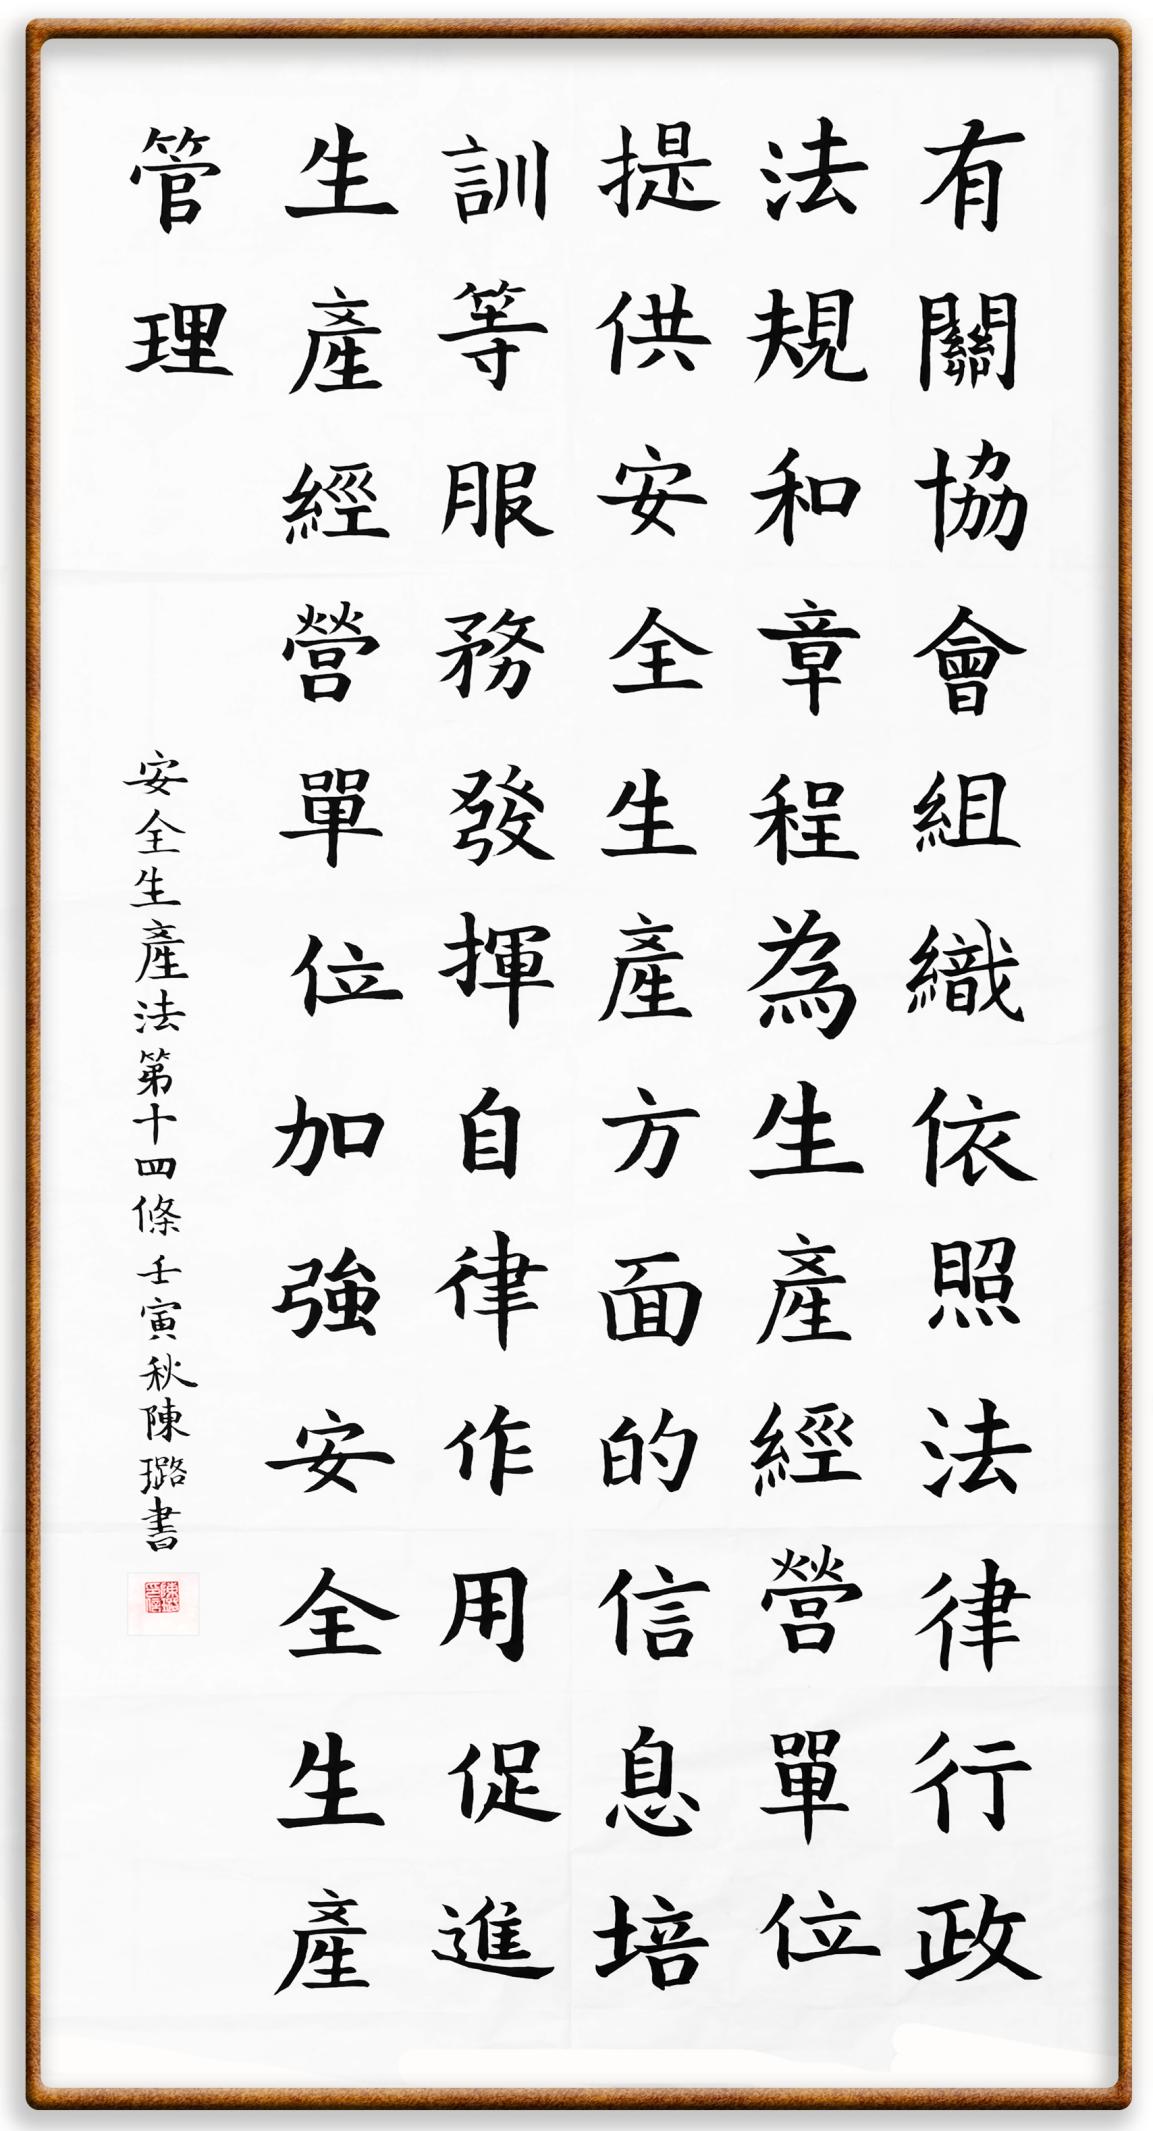 有關協會組織依照法律行政
法規和章程為生產經營單位
提供安全生產方面的信息培
訓等服務發揮自律作用促進
生產經營單位加強安全生產
管理
安全生產法第十四條壬寅秋陳璐書